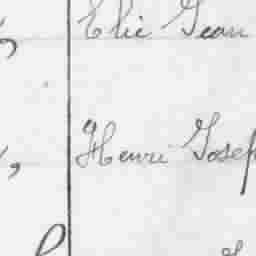 Elie Jean
Henri Josef